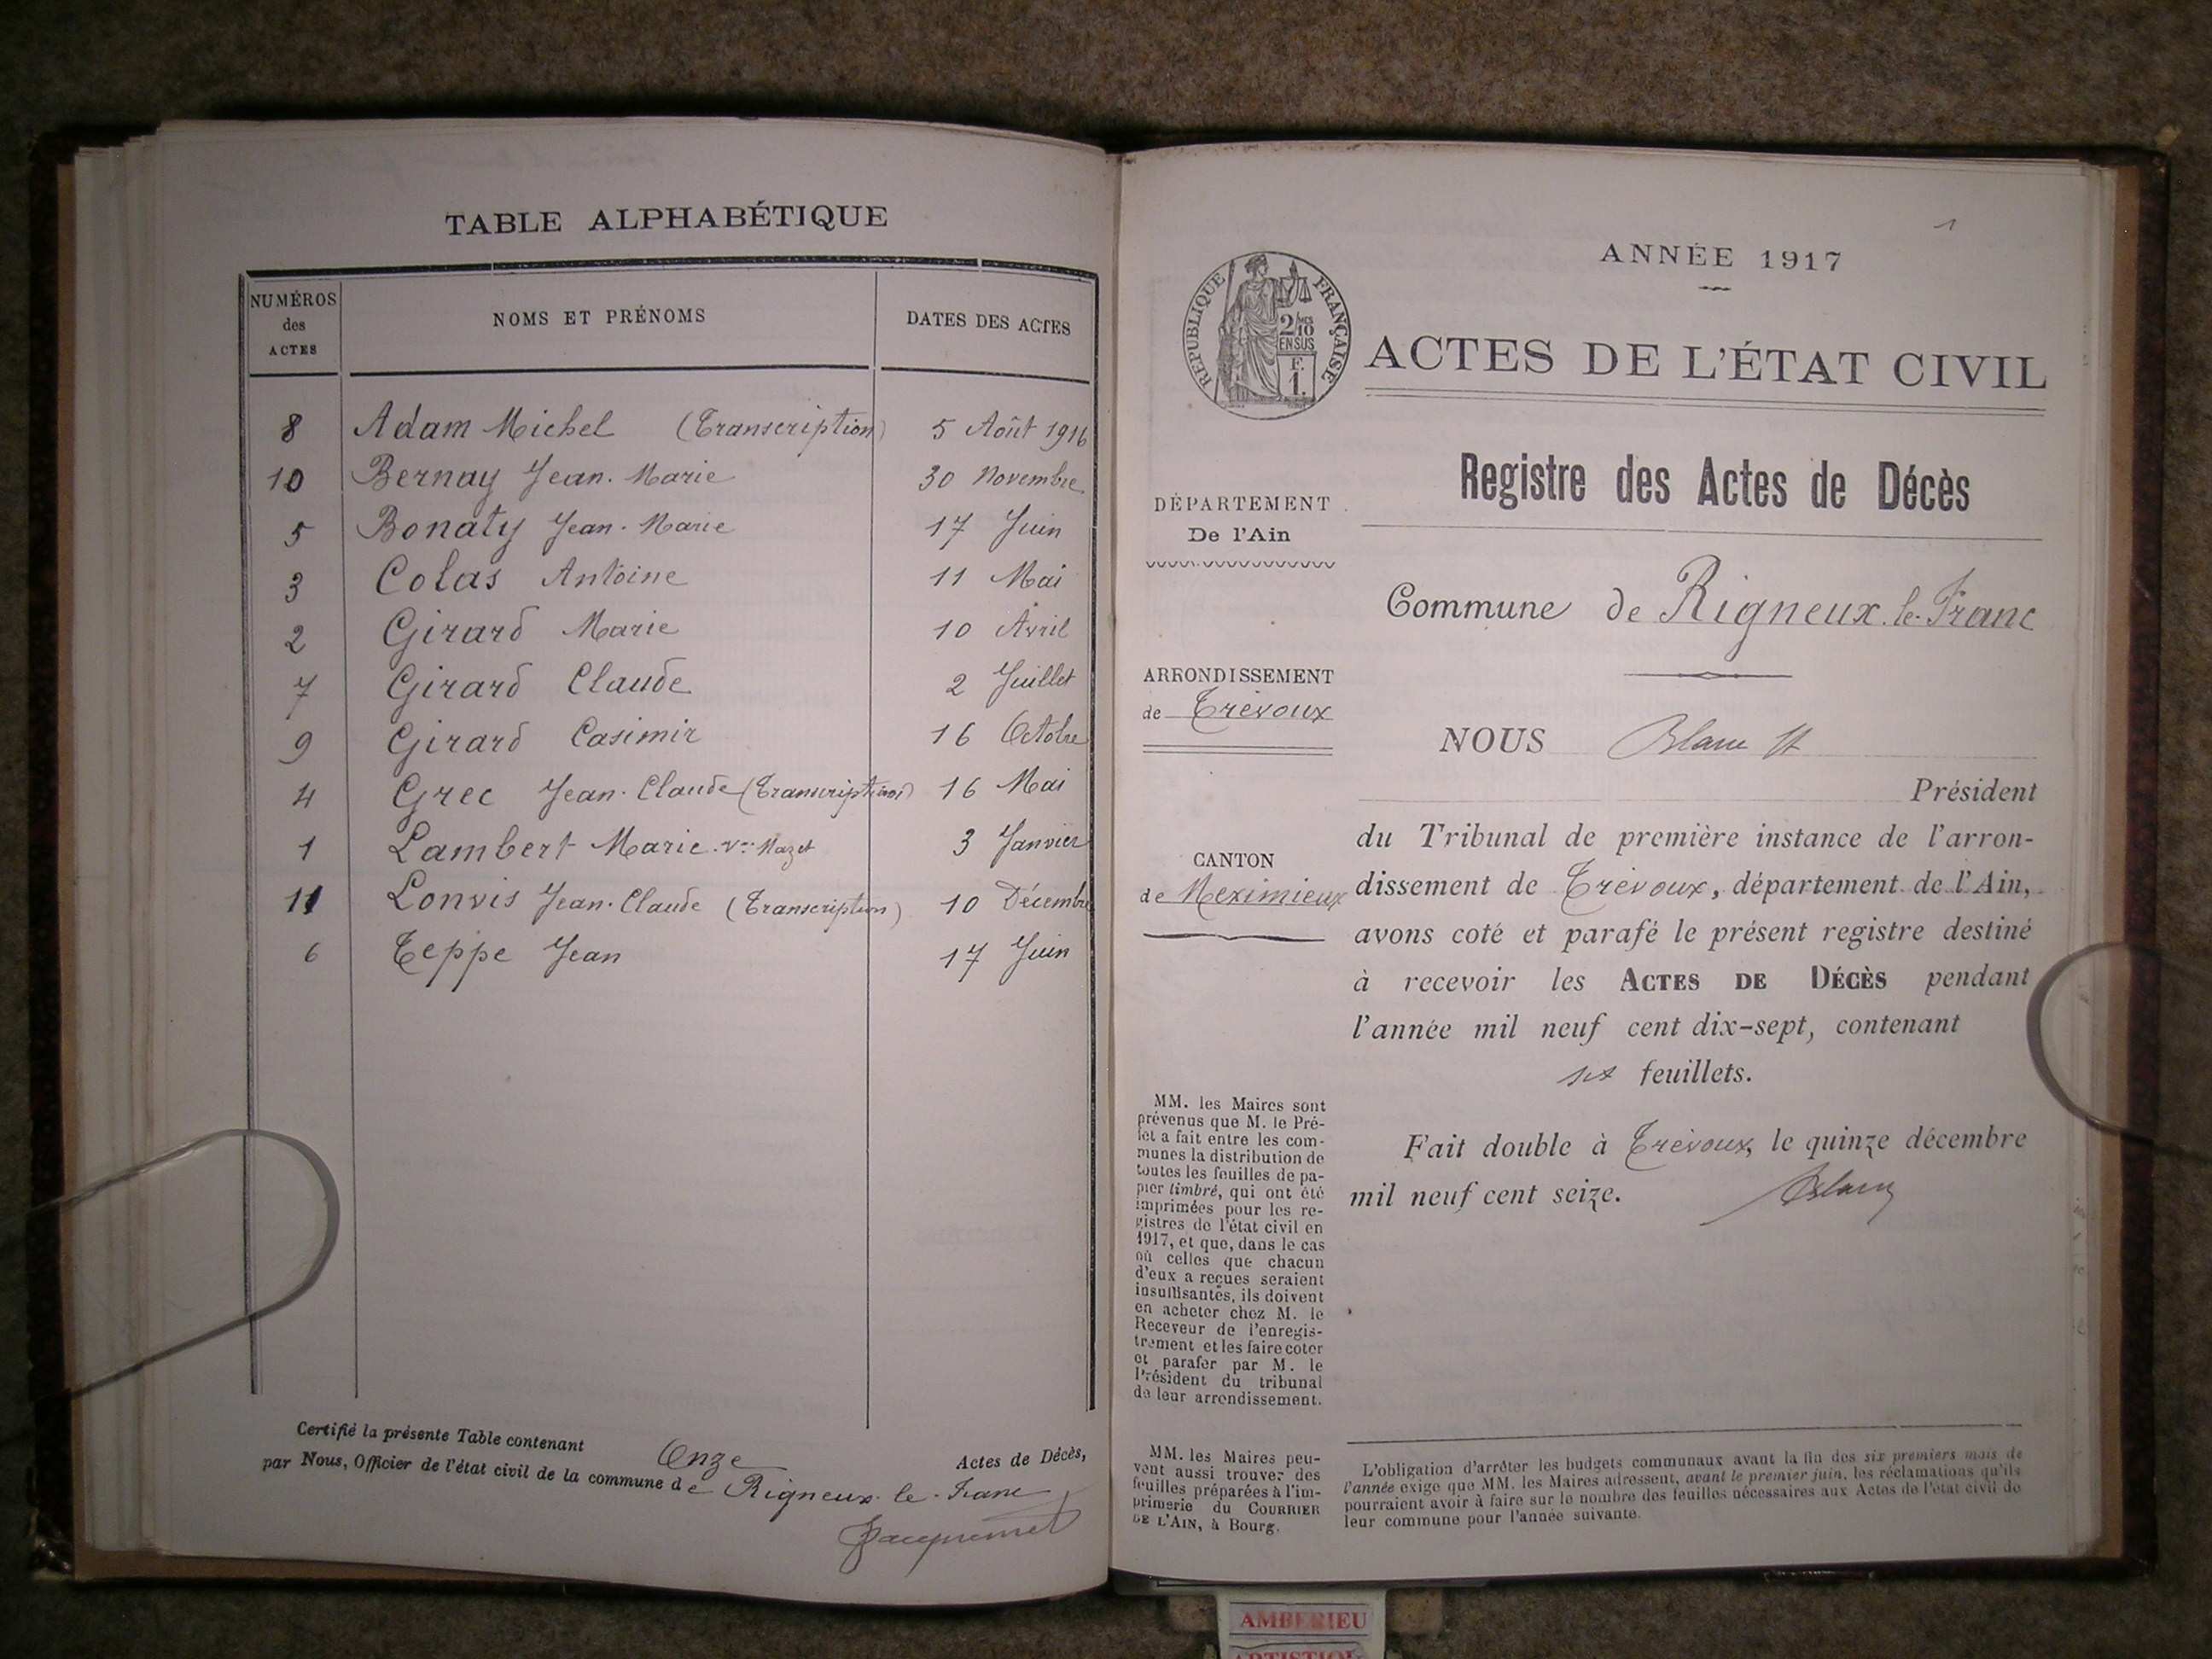 TABLE ALPHABÉTIQUE
NUMÉROS des ACTES NOMS ET PRÉNOMS DATES DES ACTES
8 Adam Michel (Transcription) 5 Août 1916
10 Bernay Jean-Marie 30 Novembre
5 Bonaty Jean-Marie 17 Juin
3 Colas Antoine 11 Mai
2 Girard Marie 10 Avril
7 Girard Claude 2 Juillet
9 Girard Casimir 16 Octobre
4 Grec Jean-Claude (Transcription) 16 Mai
1 Lambert Marie Vve Mazet 3 Janvier
11 Lonvis Jean-Claude (Transcription) 10 Décembre
6 Teppe Jean 17 Juin
Certifié la présente Table contenant Onze Actes de Décès,
par Nous, Officier de l'état civil de la commune de Rigneux-le-Franc
Jacquemet
1
ANNÉE 1917
RÉPUBLIQUE FRANÇAISE
2/10 MES
EN SUS
F.
1.
ACTES DE L'ÉTAT CIVIL
Registre des Actes de Décès
DÉPARTEMENT
De l'Ain
Commune de Rigneux-le-Franc
ARRONDISSEMENT
de Trévoux
NOUS Blanc
Président
CANTON
de Meximieux
du Tribunal de première instance de l'arron-
dissement de Trévoux, département de l'Ain,
avons coté et parafé le présent registre destiné
à recevoir les ACTES DE DÉCÈS pendant
l'année mil neuf cent dix-sept, contenant
six feuillets.
Fait double à Trévoux, le quinze décembre
mil neuf cent seize.
Blanc
MM. les Maires sont
prévenus que M. le Pré-
fet a fait entre les com-
munes la distribution de
toutes les feuilles de pa-
pier timbré, qui ont été
imprimées pour les re-
gistres de l'état civil en
1917, et que, dans le cas
où celles que chacun
d'eux a reçues seraient
insuffisantes, ils doivent
en acheter chez M. le
Receveur de l'enregis-
trement et les faire coter
et parafer par M. le
Président du tribunal
de leur arrondissement.
MM. les Maires peu-
vent aussi trouver des
feuilles préparées à l'im-
primerie du COURRIER
DE L'AIN, à Bourg.
L'obligation d'arrêter les budgets communaux avant la fin des six premiers mois de
l'année exige que MM. les Maires adressent, avant le premier juin, les réclamations qu'ils
pourraient avoir à faire sur le nombre des feuilles nécessaires aux Actes de l'état civil de
leur commune pour l'année suivante.
AMBERIEU